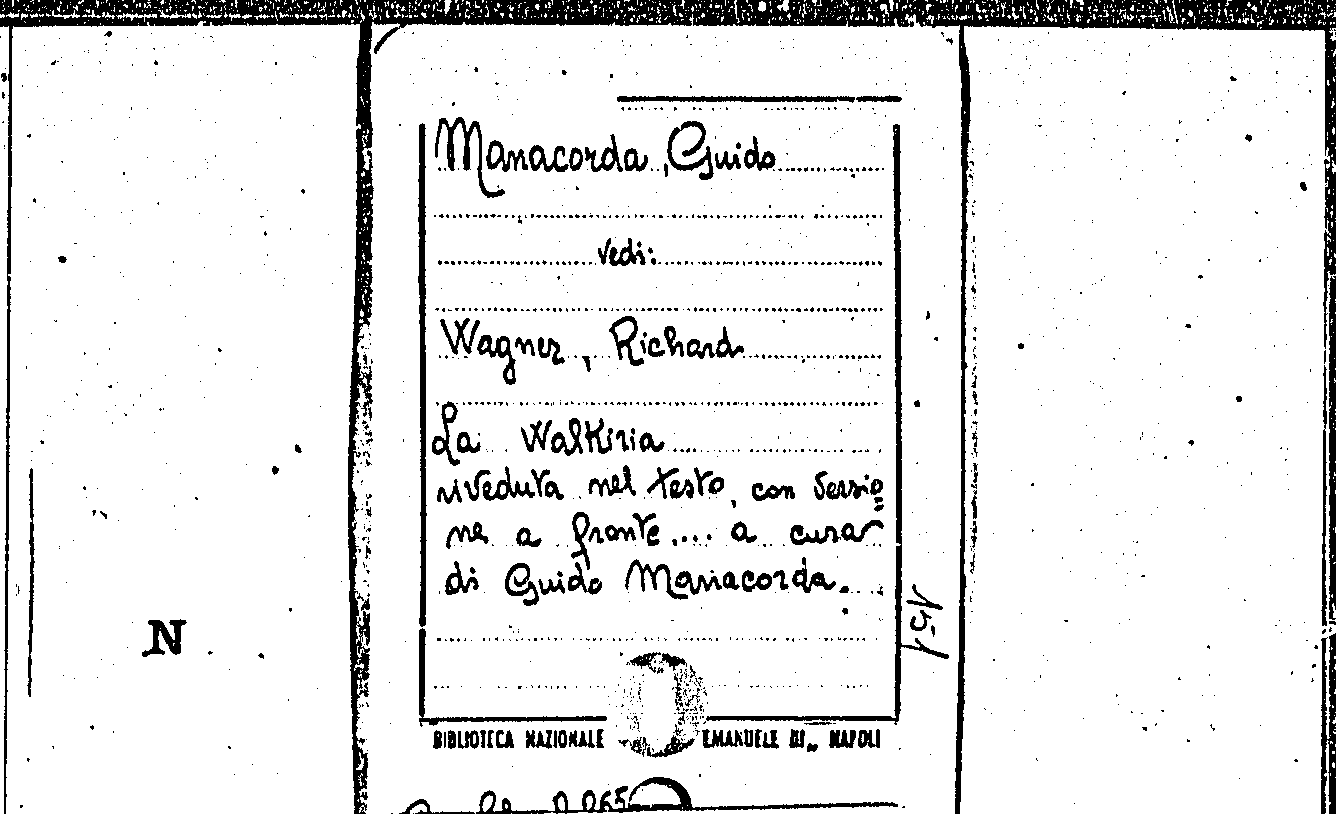 Manacorda, Guido
vedi:
Wagner, Richard
La Walkiria
riveduta nel testo, con versio
ne a fronte.... a cura
di Guido Manacorda.
N
151
BIBLIOTECA NAZIONALE EMANUELE III„ NAPOLI